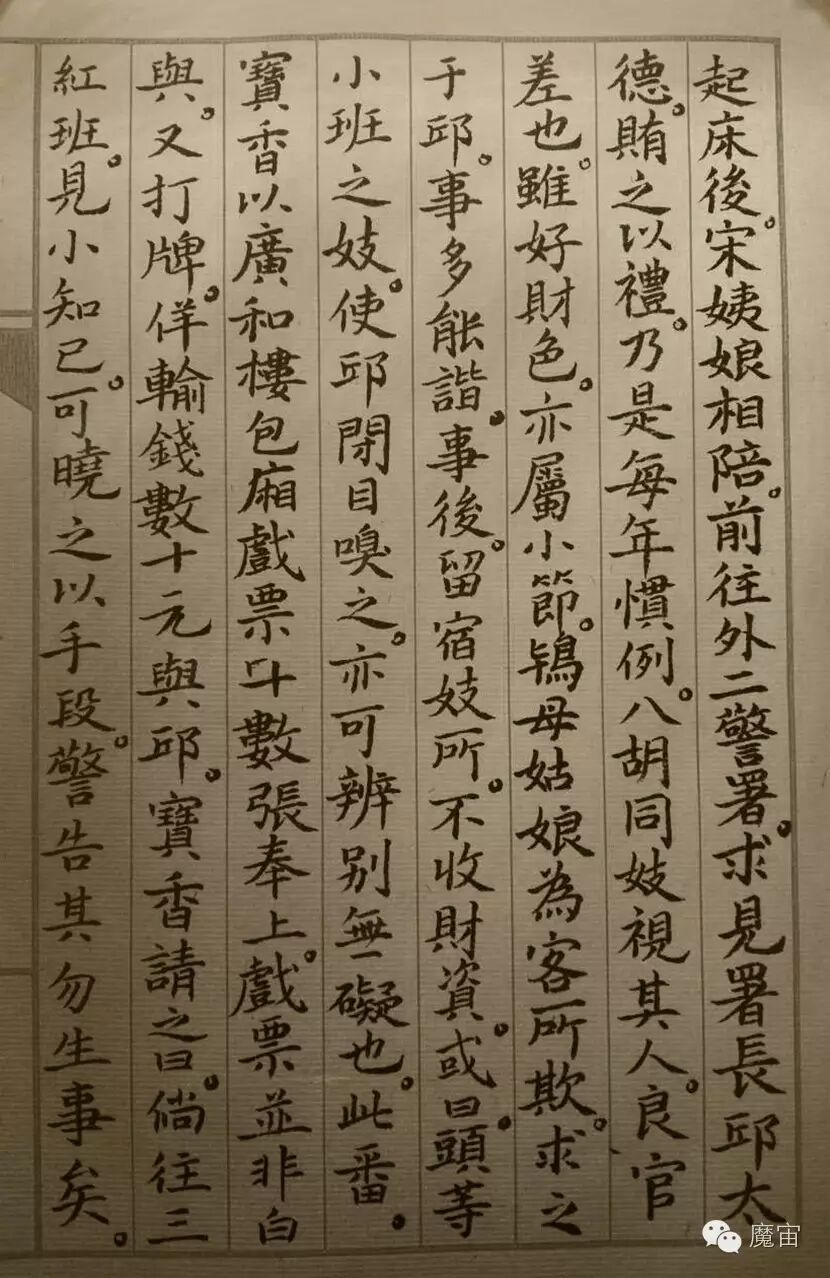 起床後。宋姨娘相陪。前往外二警署。求見署長邱太
德。賄之以禮。乃是每年慣例。八胡同妓視其人。良官
差也。雖好財色。亦屬小節。鴇母姑娘為客所欺。求之
于邱。事多能諧。事後。留宿妓所。不收財資。或曰。頭等
小班之妓。使邱閉目嗅之。亦可辨别無礙也。此番。
寶香以廣和樓包廂戲票十數張奉上。戲票並非白
與。又打牌。佯輸錢數十元與邱。寶香請之曰。倘往三
紅班。見小知己。可曉之以手段。警告其勿生事矣。
魔宙